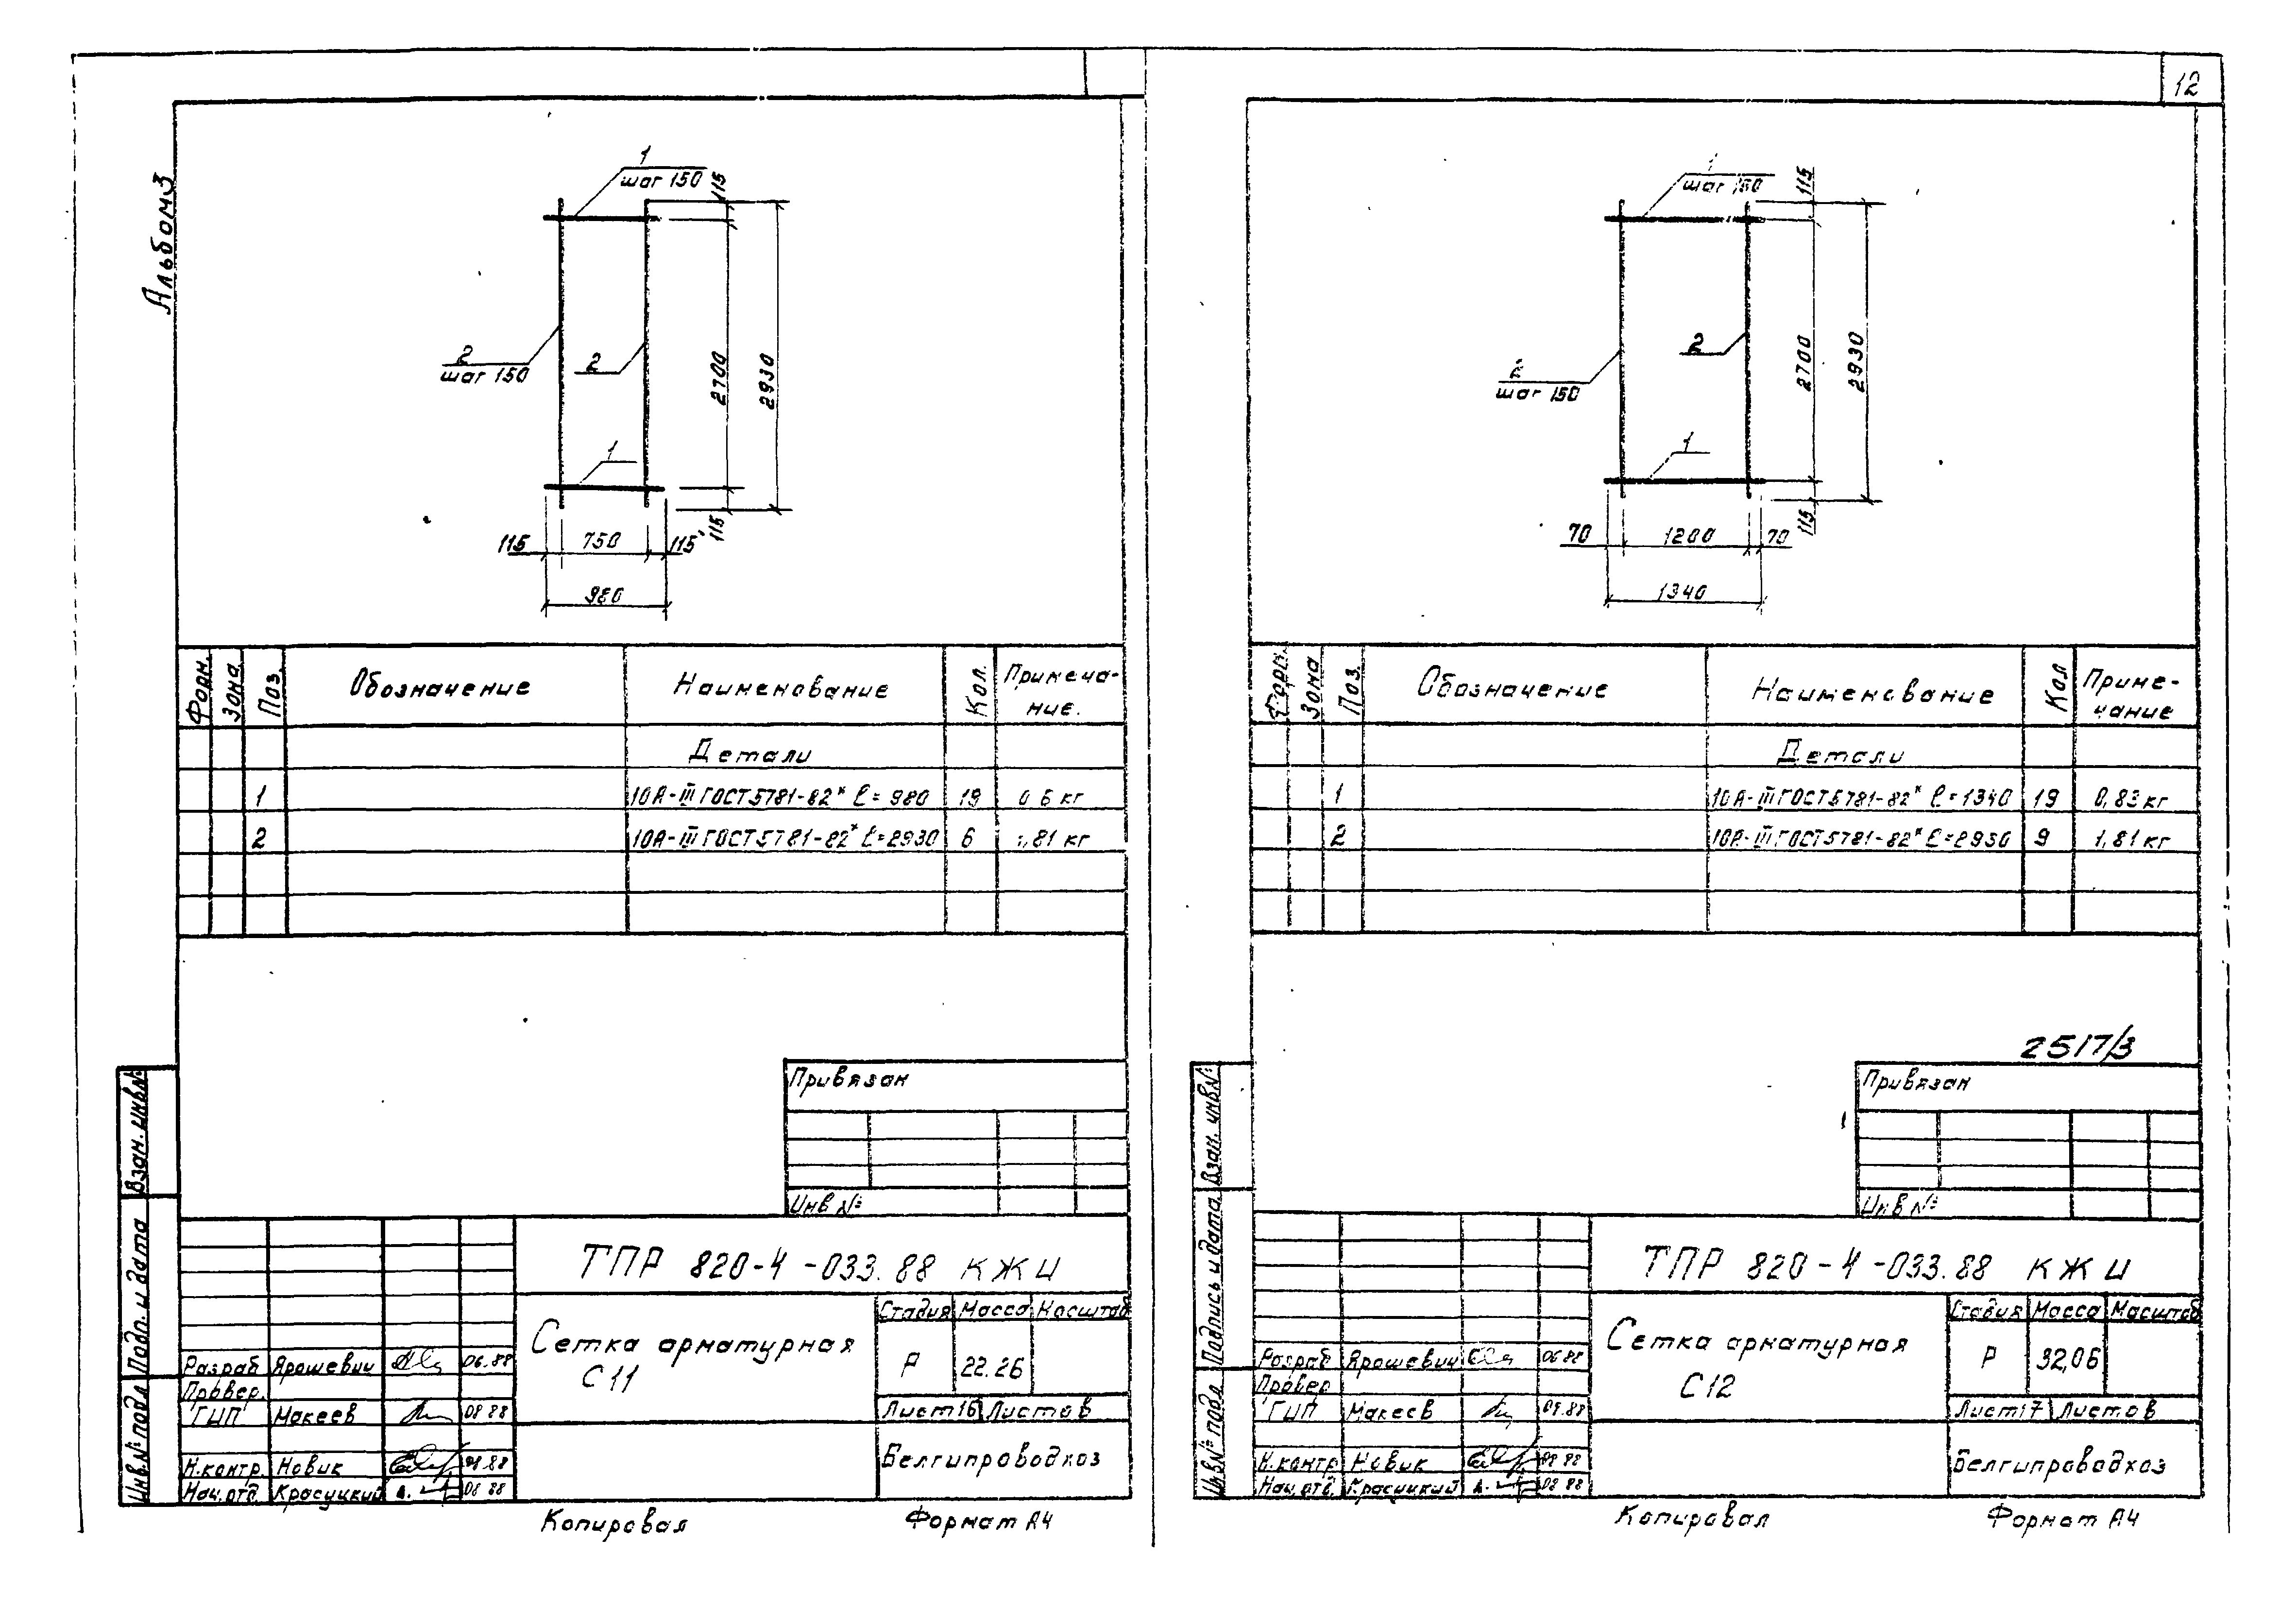 12
Альбом 3
1
шаг 150
115
2
шаг 150
2
2700
2930
1
115
115 750 115
980
Форм. Зона Поз. Обозначение Наименование Кол. Примеча-
ние.
Детали
1 10А-III ГОСТ 5781-82* ℓ=980 19 0 6 кг
2 10А-III ГОСТ 5781-82* ℓ=2930 6 1,81 кг
Привязан
Инв №
Взам. инв №
Подп. и дата
Инв. № подл
ТПР 820-4-033.88 КЖИ
Сетка арматурная
С11
Стадия Масса Масштаб
Р 22.26
Лист 16 Листов
Белгипроводхоз
Разраб Ярошевич 06.88
Провер.
ГИП Макеев 08 88
Н.контр. Новик 08.88
Нач. отд. Красуцкий 08 88
Копировал Формат А4
1
шаг 150
115
2
шаг 150
2
2700
2930
1
115
70 1200 70
1340
Форм. Зона Поз. Обозначение Наименование Кол Приме-
чание
Детали
1 10А-III ГОСТ 5781-82* ℓ=1340 19 0,83 кг
2 10А-III ГОСТ 5781-82* ℓ=2930 9 1,81 кг
2517/3
Привязан
Инв №
Взам. инв №
Подпись и дата
Инв № подл
ТПР 820-4-033.88 КЖИ
Сетка арматурная
С12
Стадия Масса Масштаб
Р 32,06
Лист 17 Листов
Белгипроводхоз
Разраб Ярошевич 06 88
Провер
ГИП Макеев 08.88
Н.контр Новик 08 88
Нач. отд. Красуцкий 08 88
Копировал Формат А4